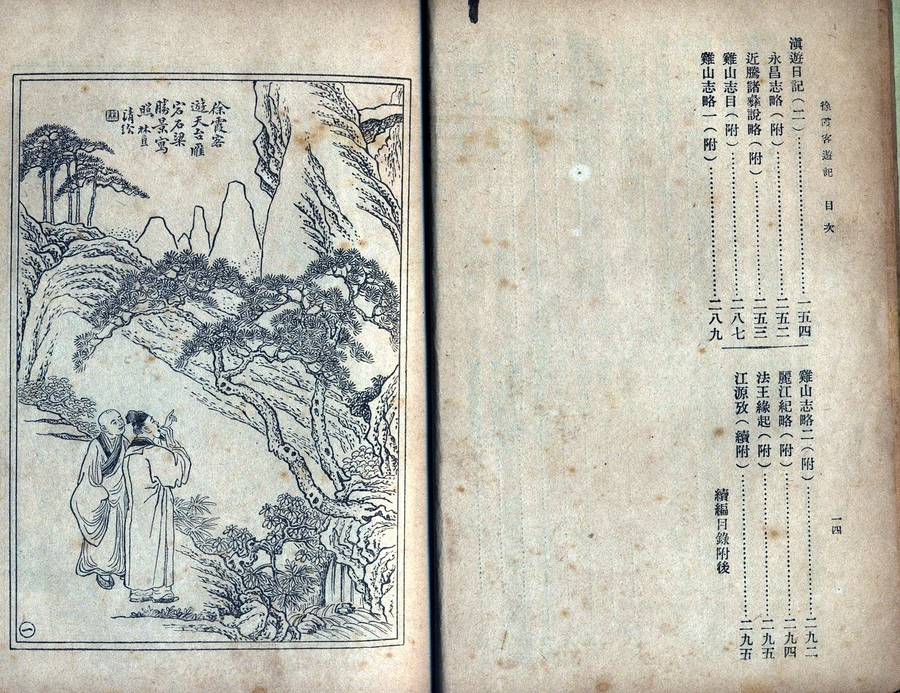 徐霞客遊記 目次
一四
滇遊日記(二)……一五四
永昌志略(附)……二五二
近騰諸彝說略(附)……二五三
雞山志目(附)……二八七
雞山志略一(附)……二八九
雞山志略二(附)……二九二
麗江紀略(附)……二九四
法王緣起(附)……二九五
江源攷(續附)……二九五
續編目錄附後
徐霞客
遊天台雁
宕石梁
勝景寫
照 林直
清繪
一